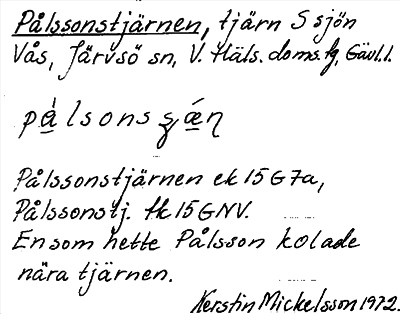 Pålssonstjärnen, tjärn S sjön
Vås, Järvsö sn, V. Häls. doms.fg, Gävl.l.
Pålssonstjärnen ek 15G7a,
Pålssonstj. fk 15GNV.
En som hette Pålsson kolade
nära tjärnen.
Kerstin Mickelsson 1972.